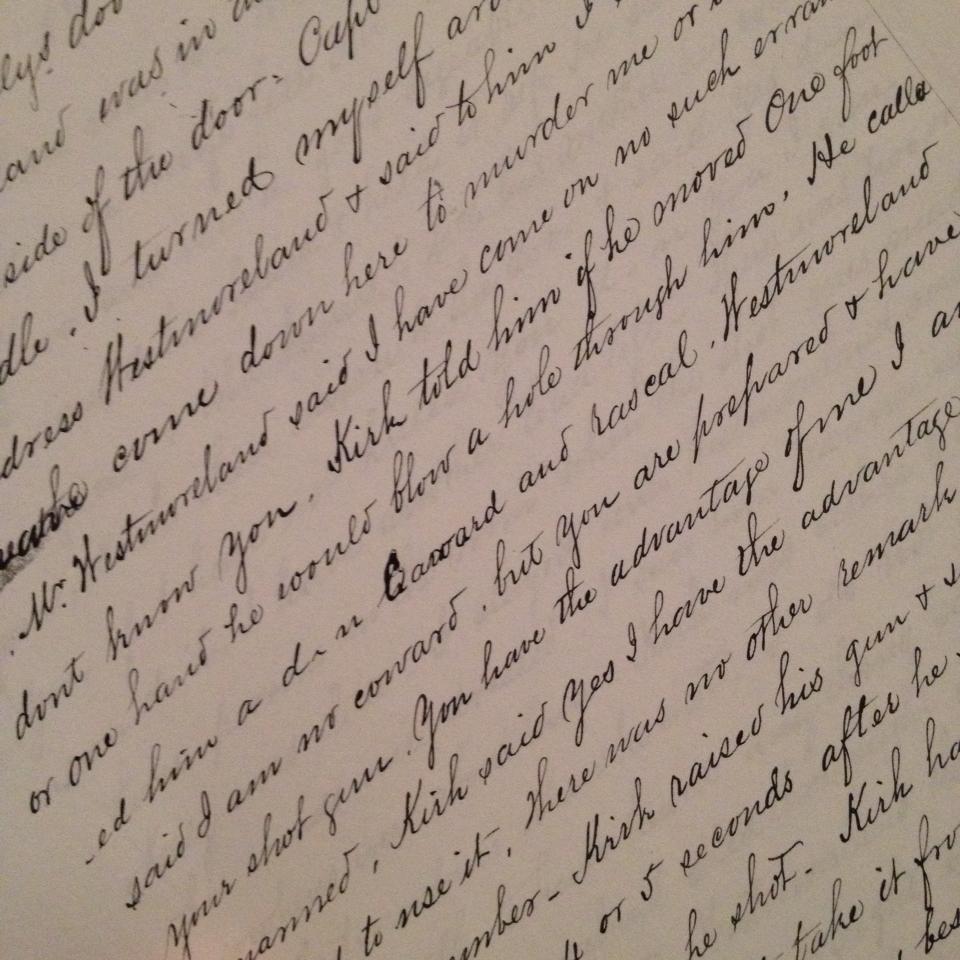 and was in
side of the door. Capt
dle. I turned myself aro
dress Westmoreland & said to him I
come down here to murder me or
Mr. Westmoreland said I have come on no such erran
dont know you. Kirk told him if he moved One foot
or one hand he would blow a hole through him. He calla
ed him a d-n Caward and rascal. Westmoreland
said I am no coward, but you are prepared & have
your shot gun. You have the advantage of me I a
anned, Kirk said Yes I have the advantage
to use it, there was no other remark
mber- Kirk raised his gun & s
or 5 seconds after he
he shot- Kirk ha
take it fro
bes